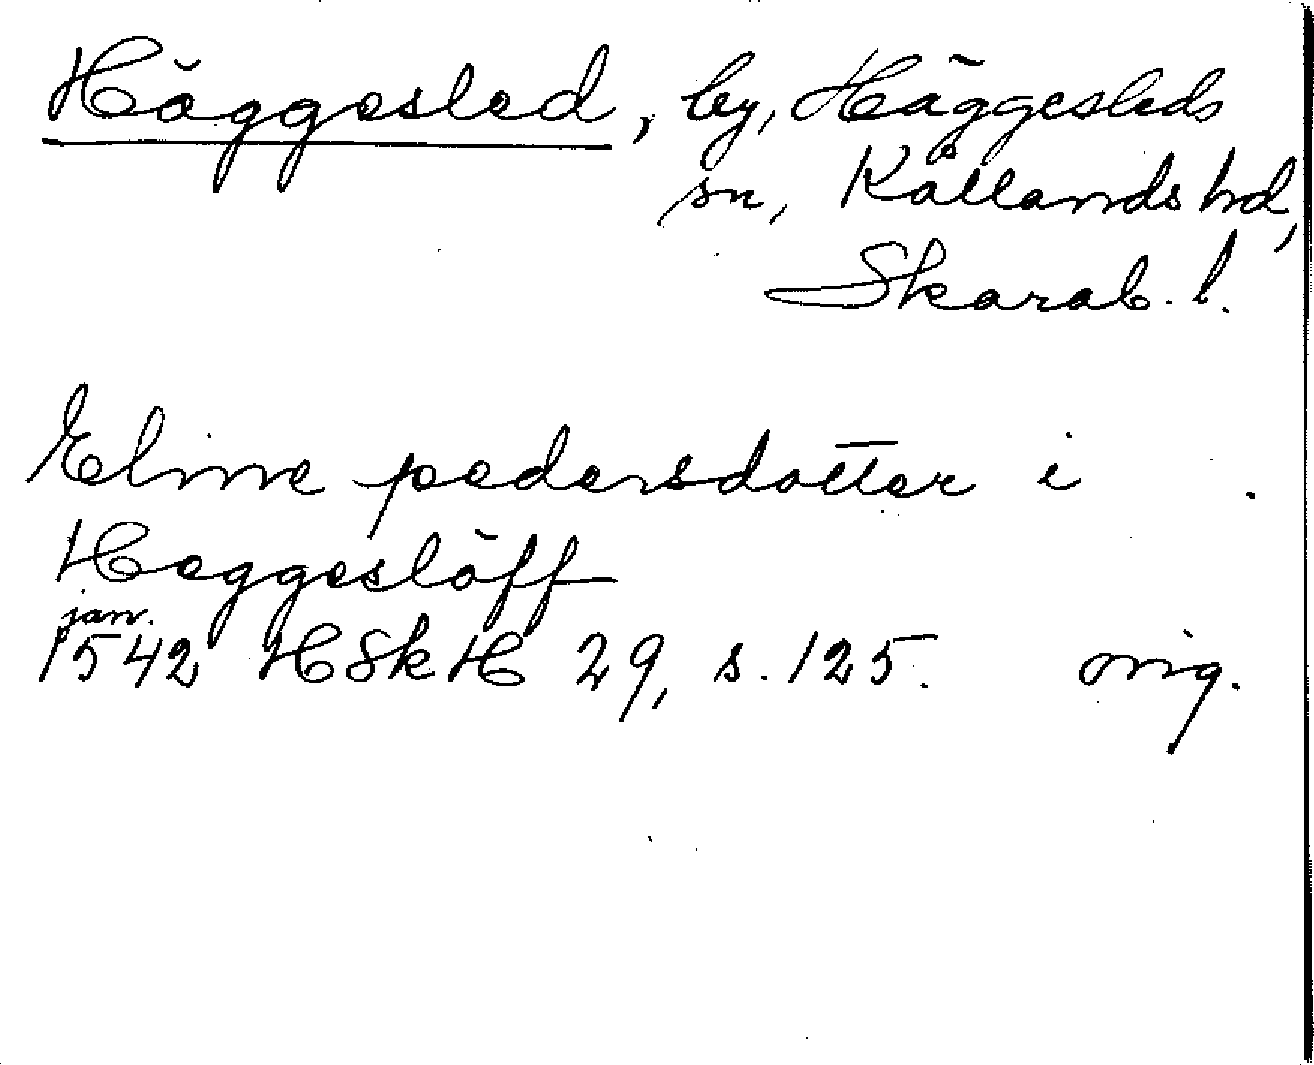 Häggesled, by, Häggesleds
sn, Kållands hd,
Skarab. l.
Elinne pedersdotter i
Heggeslöff
jan.
1542 HSkH 29, s. 125. orig.